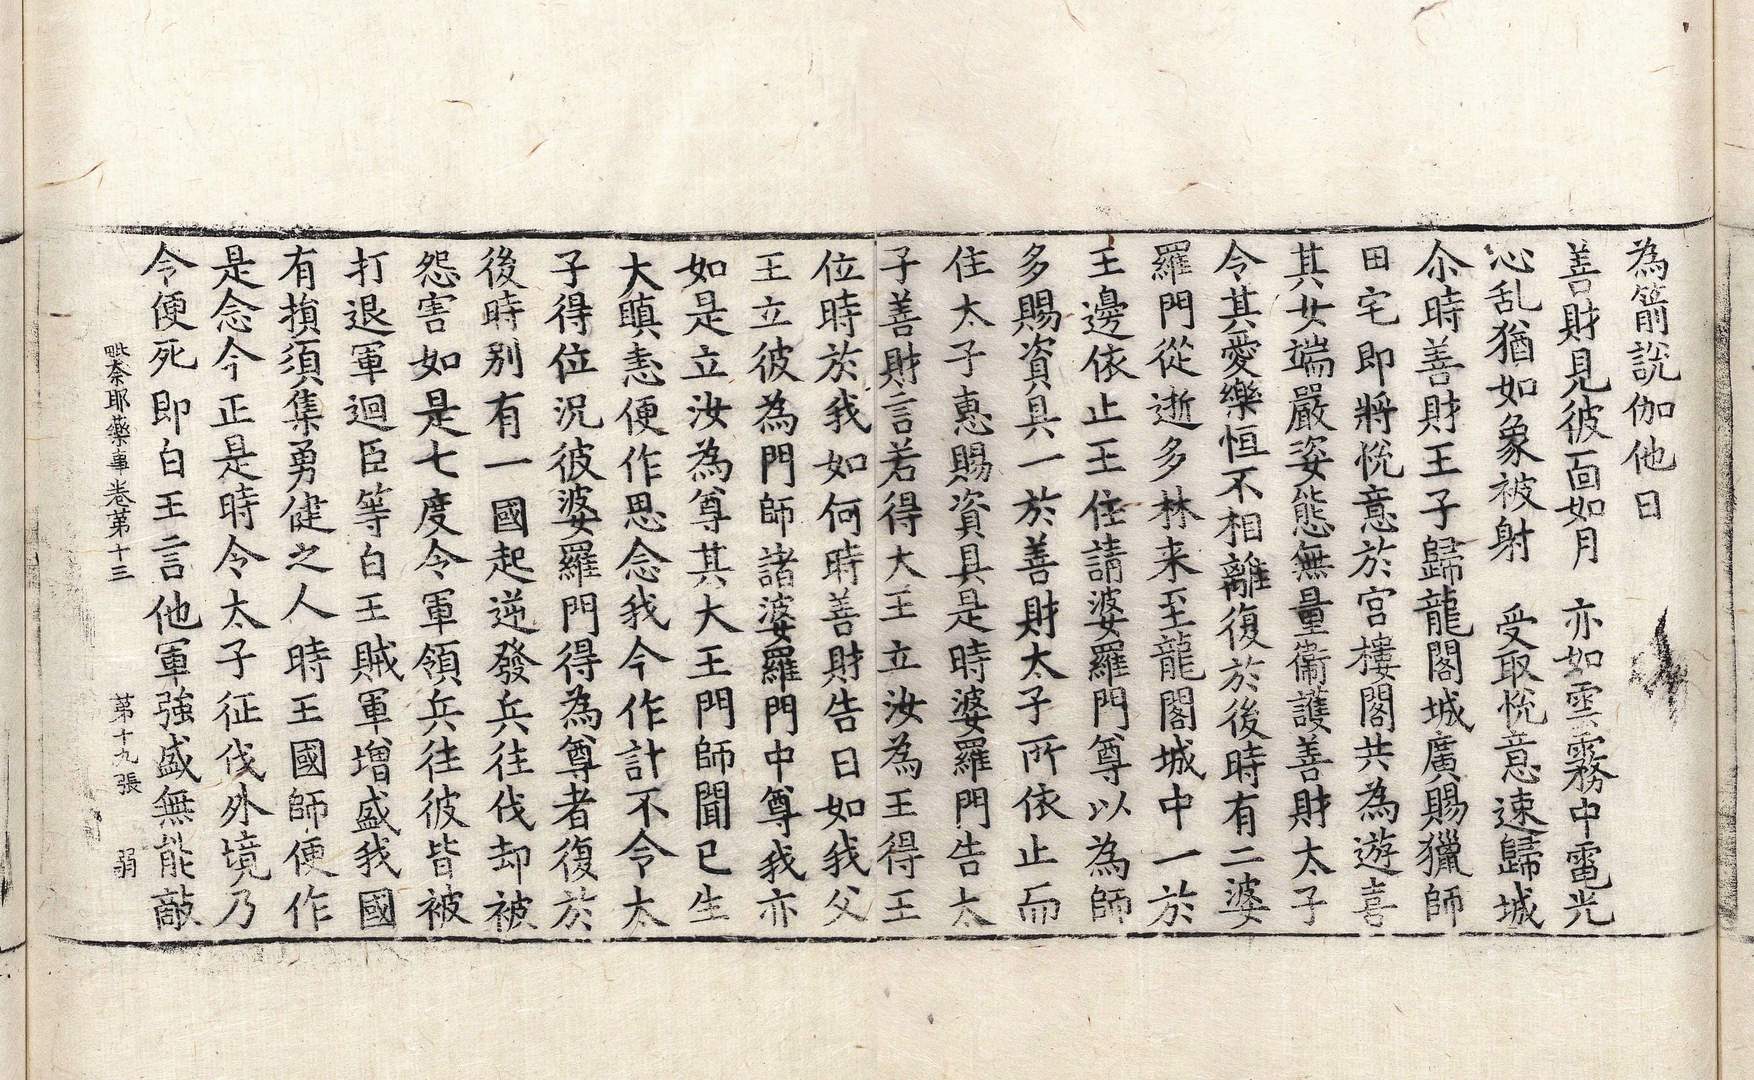 為箭說伽他曰
善財見彼面如月　亦如雲霧中電光
心乱猶如象被射　受取悅意速歸城
尒時善財王子歸龍閣城廣賜獵師
田宅即將悅意於宮樓閣共為遊喜
其女端嚴姿態無量衞護善財太子
令其愛樂恒不相離復於後時有二婆
羅門從逝多林来至龍閣城中一於
王邊依止王住請婆羅門尊以為師
多賜資具一於善財太子所依止而
住太子惠賜資具是時婆羅門告太
子善財言若得大王立汝為王得王
位時於我如何時善財告曰如我父
王立彼為門師諸婆羅門中尊我亦
如是立汝為尊其大王門師聞已生
大瞋恚便作思念我今作計不令太
子得位況彼婆羅門得為尊者復於
後時别有一國起逆發兵往伐却被
怨害如是七度令軍領兵往彼皆被
打退軍迴臣等白王賊軍增盛我國
有損須集勇健之人時王國師便作
是念今正是時令太子征伐外境乃
令便死即白王言他軍強盛無能敵
毗奈耶藥事卷第十三　第十九張　弱